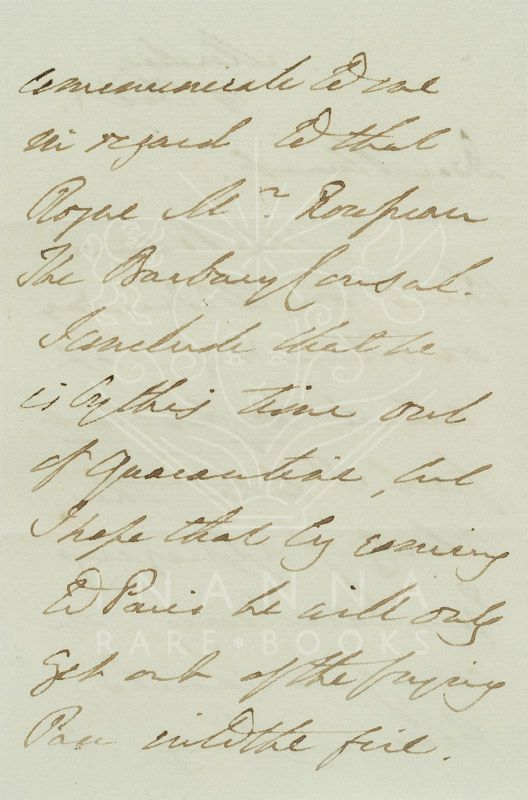 communicate to me
in regard to that
Rogue Mr. Rousseau
The Barbary Consul.
I conclude that he
is by this time out
of Quarantine, but
I hope that by coming
to Paris he will only
get out of the frying
Pan into the fire.
INANNA
RARE * BOOKS